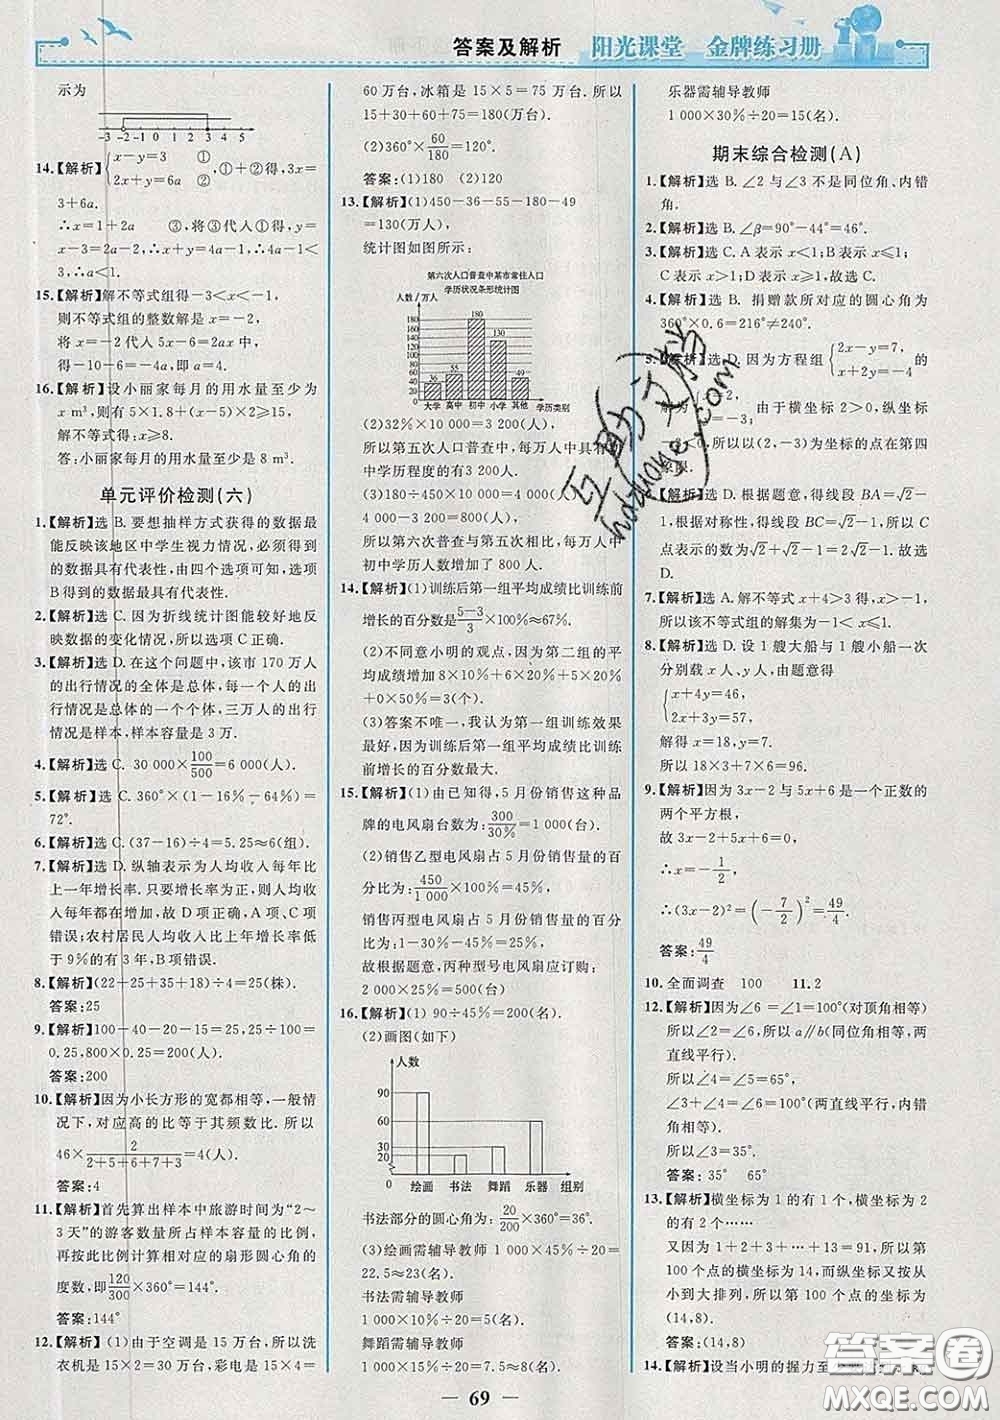 答案及解析 阳光课堂 金牌练习册
示为
-3 -2 -1 0 1 2 3 4 5
14.【解析】{x-y=3 ① 2x+y=6a ②, ①+②得,3x=
3+6a.
∴x=1+2a ③,将③代入①得,y=
x-3=2a-2,∴x+y=4a-1,∴4a-1<
3,∴a<1.
15.【解析】解不等式组得-3<x<-1,
则不等式组的整数解是x=-2,
将x=-2代入5x-6=2ax中,
得-10-6=-4a,即a=4.
16.【解析】设小丽家每月的用水量至少为
x m³,则有5×1.8+(x-5)×2≥15,
解不等式得:x≥8.
答:小丽家每月的用水量至少是8 m³.
单元评价检测(六)
1.【解析】选B.要想抽样方式获得的数据最
能反映该地区中学生视力情况,必须得到
的数据具有代表性,由四个选项可知,选项
B得到的数据最具有代表性.
2.【解析】选C.因为折线统计图能较好地反
映数据的变化情况,所以选项C正确.
3.【解析】选D.在这个过程中,该市170万人
的出行情况的全体是总体,每一个人的出
行情况是总体的一个个体,三万人的出行
情况是样本,样本容量是3万.
4.【解析】选C. 30 000×100/500=6 000(人).
5.【解析】选C.360°×(1-16%-64%)=
72°.
6.【解析】选C.(37-16)÷4=5.25≈6(组).
7.【解析】选D.纵轴表示为人均收入每年比
上一年增长率.只要增长率为正,则人均收
入就在增加.故D项正确,A项、C项都
错误;农村居民人均收入比上年增长率低
于9%的有2年,B项错误.
8.【解析】(22+25+35+18)÷4=25(株).
答案:25
9.【解析】100-40-20-15=25,25÷100=
0.25,800×0.25=200(人).
答案:200
10.【解析】因为小长方形的宽都相等,一般情
况下,对应高的比等于其频数比.所以
46×2/(2+5+6+7+3)=4(人).
答案:4
11.【解析】首先算出样本中旅游时间为“2~
3天”的游客数量所占样本容量的比例,
再按此比例计算相对应的扇形圆心角的
度数,即120/300×360°=144°.
答案:144°
12.【解析】(1)由于空调是15万台,所以洗
衣机是15×2=30(万台),彩电是15×4=
60万台,冰箱是15×5=75万台.所以
15+30+60+75=180(万台).
(2)360°×60/180=120°.
答案:(1)180 (2)120
13.【解析】(1)450-36-55-180-49
=130(万人),
统计图如图所示:
第六次人口普查中某市常住人口
学历状况条形统计图
人数/万人
180
160
140
120
100
80
60
40
20
0
36 55 180 130 49
大学 高中 初中 小学 其他 学历类别
(2)32%×10 000=3 200(人),
所以第五次人口普查中,每万人中具有初
中学历程度的有3 200人.
(3)180÷450×10 000=4 000(人),
4 000-3 200=800(人),
所以第六次普查与第五次相比,每万人中
初中学历人数增加了800人.
14.【解析】(1)训练后第一组平均成绩比训练前
增长的百分数是(5-3)/3×100%≈67%.
(2)不同意小明的观点,因为第二组的平
均成绩增加8×10%+6×20%+5×20%
+0×50%=3(个).
(3)答案不唯一,我认为第一组训练效果
最好,因为训练后第一组平均成绩比训练
前增长的百分数最大.
15.【解析】(1)由已知得,5月份销售这种品
牌的电风扇台数为:300/30%=1 000(台).
(2)销售乙型电风扇占5月份销售量的百
分比为:450/1 000×100%=45%,
销售丙型电风扇占5月份销售量的百分
比为:1-30%-45%=25%,
故根据题意,丙种型号电风扇应订购:
2 000×25%=500(台).
16.【解析】(1) 90÷45%=200(名).
(2)画图(如下)
人数
90
60
30
20
0
绘画 书法 舞蹈 乐器 组别
书法部分的圆心角为:20/200×360°=36°.
(3)绘画需辅导教师1 000×45%÷20=
22.5≈23(名)
书法需辅导教师
1 000×10%÷20=5(名)
舞蹈需辅导教师
1 000×15%÷20=7.5≈8(名)
乐器需辅导教师
1 000×30%÷20=15(名).
期末综合检测(A)
1.【解析】选B.∠2与∠3不是同位角、内错
角.
2.【解析】选B.∠β=90°-44°=46°.
3.【解析】选C.A表示x<1;B表示x≤1;
C表示x>1;D表示x≥1,故选C.
4.【解析】选B. 捐赠款所对应的圆心角为
360°×0.6=216°≠240°.
5.【解析】选D.因为方程组{2x-y=7, x+2y=-4的
解为 =-3, 由于横坐标2>0,纵坐标
-3<0,所以以(2,-3)为坐标的点在第四
象限.
【解析】选D.根据题意,得线段BA=√2-
1,根据对称性,得线段BC=√2-1,所以C
点表示的数为√2+√2-1=2√2-1.故选
D.
7.【解析】选A.解不等式x+4>3得,x>-1,
所以该不等式组的解集为-1<x≤1.
8.【解析】选D.设1艘大船与1艘小船一次
分别载x人、y人,由题意得
{x+4y=46,
2x+3y=57,
解得x=18,y=7.
所以18×3+7×6=96.
9.【解析】因为3x-2与5x+6是一个正数的
两个平方根,
故3x-2+5x+6=0,
∴x=-1/2,
∴(3x-2)²=(-7/2)²=49/4.
答案:49/4
10. 全面调查 100 11. 2
12.【解析】因为∠6=∠1=100°(对顶角相等)
所以∠2=∠6,所以a∥b(同位角相等,两
直线平行).
所以∠4=∠5=65°,
∠3+∠4=100°(两直线平行,内错角相等)
所以∠3=35°.
答案:35° 65°
13.【解析】横坐标为1的有1个,横坐标为2
的有2个……
又因为1+2+3+…+13=91,所以第
100个点的横坐标为14,而纵坐标又按从
小到大排列,所以第100个点的坐标为
(14,8)
答案:(14,8)
14.【解析】设当小明的握力至
69
互助文学
hdzuoye.com
答案圈
MXQE.COM